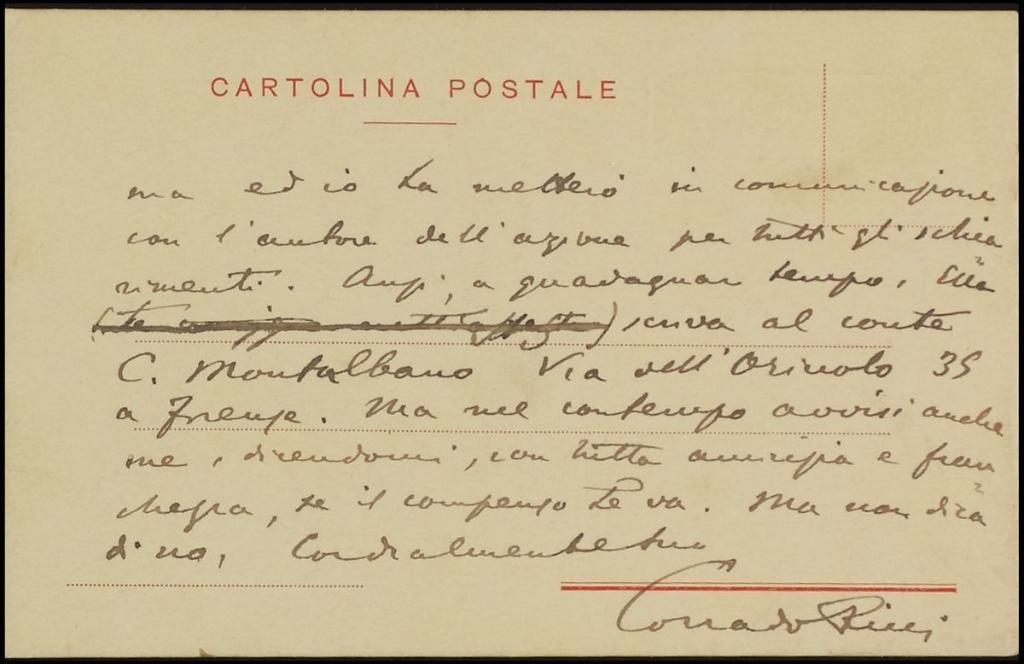 CARTOLINA POSTALE
ma ed io La metterò in comunicazione
con l'autore dell'azione per tutti gli schia
rimenti. Anzi, a guadagnar tempo, Ella
scriva al conte
C. Montalbano Via dell'Oriuolo 35
a Firenze. Ma nel contempo avvisi anche
me, dicendomi, con tutta amicizia e fran
chezza, se il compenso Le va. Ma non dica
di no, Cordialmente suo
Corrado Ricci